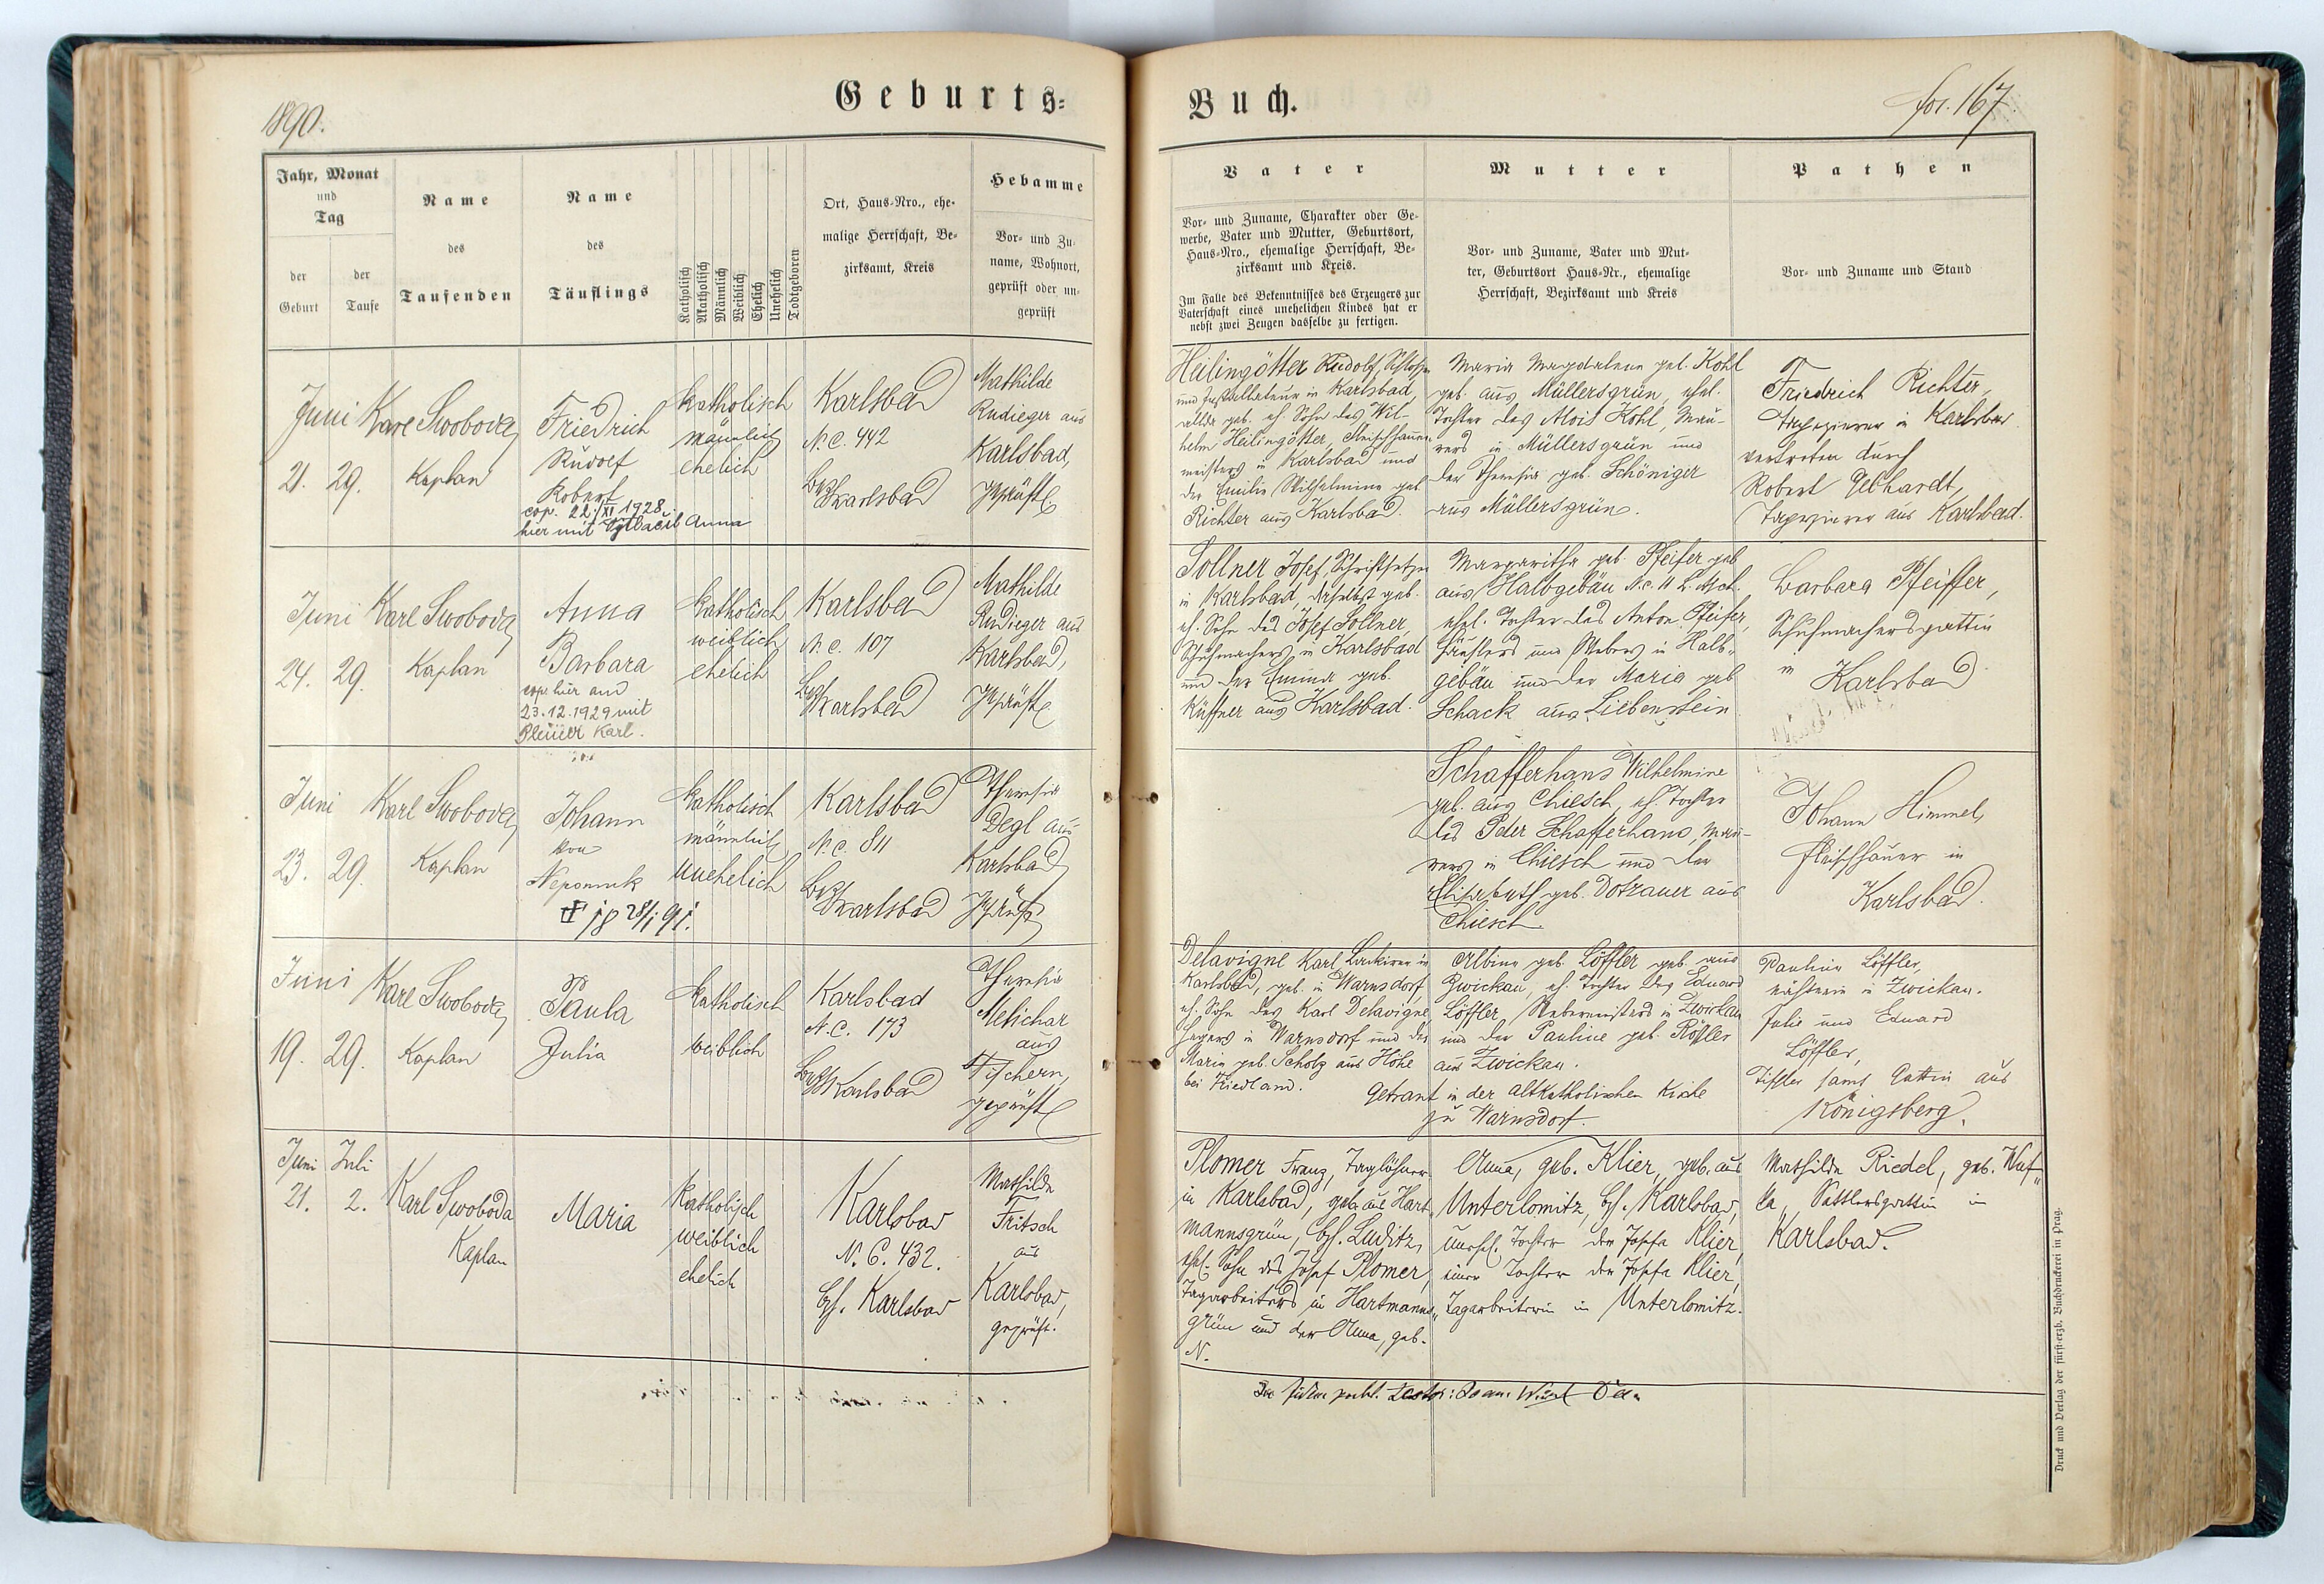 1890.
Geburts-
Jahr, Monat
und
Tag
der
Geburt
der
Taufe
Name
des
Taufenden
Name
des
Täuflings
Katholisch
Akatholisch
Männlich
Weiblich
Ehelich
Unehelich
Todtgeboren
Ort, Haus-Nro., ehe-
malige Herrschaft, Be-
zirksamt, Kreis
Hebamme
Vor- und Zu-
name, Wohnort,
geprüft oder un-
geprüft
Juni
21. 29.
Karl Swoboda
Kaplan
Friedrich
Rudolf
Robert
cop. 22./XI 1928
hier mit Anna
katholisch
männlich
ehelich
Karlsbad
N.C. 442
Karlsbad
Mathilde
Rudieger aus
Karlsbad,
geprüft
Juni
24. 29.
Karl Swoboda
Kaplan
Anna
Barbara
cop. hier am
23.12.1929 mit
Pleier Karl.
katholisch
weiblich
ehelich
Karlsbad
N.C. 107
Karlsbad
Mathilde
Rudieger aus
Karlsbad,
geprüft
Juni
23. 29.
Karl Swoboda
Kaplan
Johann
von
Nepomuk
katholisch
männlich
unehelich
Karlsbad
N.C. 811
Karlsbad
Theresia
Degl aus
Karlsbad
geprüft
Juni
19. 29.
Karl Swoboda
Kaplan
Paula
Julia
katholisch
weiblich
Karlsbad
N.C. 173
Karlsbad
Theresia
Melichar
aus
Fischern,
geprüft
Juni Juli
21. 2.
Karl Swoboda
Kaplan
Maria
katholisch
weiblich
ehelich
Karlsbad
N.C. 432.
Bzh. Karlsbad
Mathilde
Fritsch
aus
Karlsbad,
geprüft.
Buch.
fol. 167
Vater
Vor- und Zuname, Charakter oder Ge-
werbe, Vater und Mutter, Geburtsort,
Haus-Nro., ehemalige Herrschaft, Be-
zirksamt und Kreis.
Im Falle des Bekenntnisses des Erzeugers zur
Vaterschaft eines unehelichen Kindes hat er
nebst zwei Zeugen dasselbe zu fertigen.
Mutter
Vor- und Zuname, Vater und Mut-
ter, Geburtsort Haus-Nr., ehemalige
Herrschaft, Bezirksamt und Kreis
Pathen
Vor- und Zuname und Stand
Heilingötter Rudolf, Schlosser
und Installateur in Karlsbad,
allda geb. eh. Sohn des Wil-
helm Heilingötter, Fleischhauer-
meisters in Karlsbad und
der Emilie Wilhelmine geb.
Richter aus Karlsbad.
Maria Magdalena geb. Kohl
geb. aus Müllersgrün, ehel.
Tochter des Alois Kohl, Mau-
rers in Müllersgrün und
der Theresia geb. Schöniger
aus Müllersgrün.
Friedrich Richter,
Tapezierer in Karlsbad
vertreten durch
Robert Gebhardt,
Tapezierer aus Karlsbad.
Sollner Josef, Schriftsetzer
in Karlsbad, daselbst geb.
eh. Sohn des Josef Sollner,
Schuhmachers in Karlsbad
und der Emma geb.
Küffner aus Karlsbad.
Margaritha geb. Pfeifer geb.
aus Halbgebäu N.C. 11
ehel. Tochter des Anton Pfeifer,
Häuslers und Webers in Halb-
gebäu und der Maria geb
Schack aus Liebenstein
Barbara Pfeiffer,
Schuhmachersgattin
in Karlsbad
Schafferhans Wilhelmine
geb. aus Chiesch, eh. Tochter
des Peter Schafferhans, Mau-
rers in Chiesch und der
Elisabeth geb. Dotzauer aus
Chiesch
Johann Himmel,
Fleischhauer in
Karlsbad.
Delavigne Karl, Lackirer in
Karlsbad, geb. in Warnsdorf,
eh. Sohn des Karl Delavigne
Hegers in Warnsdorf und der
Maria geb. Scholz aus Höhe
bei Friedland.
Albine geb. Löffler geb. aus
Zwickau, eh. Tochter des Eduard
Löffler Webermeisters in Zwickau
und der Pauline geb. Rößler
aus Zwickau.
Getraut in der altkatholischen Kirche
zu Warnsdorf.
Pauline Löffler,
Näherin in Zwickau.
Julie und Eduard
Löffler,
Tischler samt Gattin aus
Königsberg.
Plomer Franz, Taglöhner
in Karlsbad, geb. aus Hart-
mannsgrün, Bzh. Luditz,
ehel. Sohn des Josef Plomer,
Tagarbeiters in Hartmanns-
grün und der Anna, geb.
N.
Anna, geb. Klier, geb. aus
Unterlomitz, Bzh. Karlsbad,
unehel. Tochter der Josefa Klier,
einer Tochter der Josefa Klier,
Tagarbeiterin in Unterlomitz.
Mathilde Riedel, geb. Waf-
ka Sattlersgattin in
Karlsbad.
Druck und Verlag der fürst-erzb. Buchdruckerei in Prag.